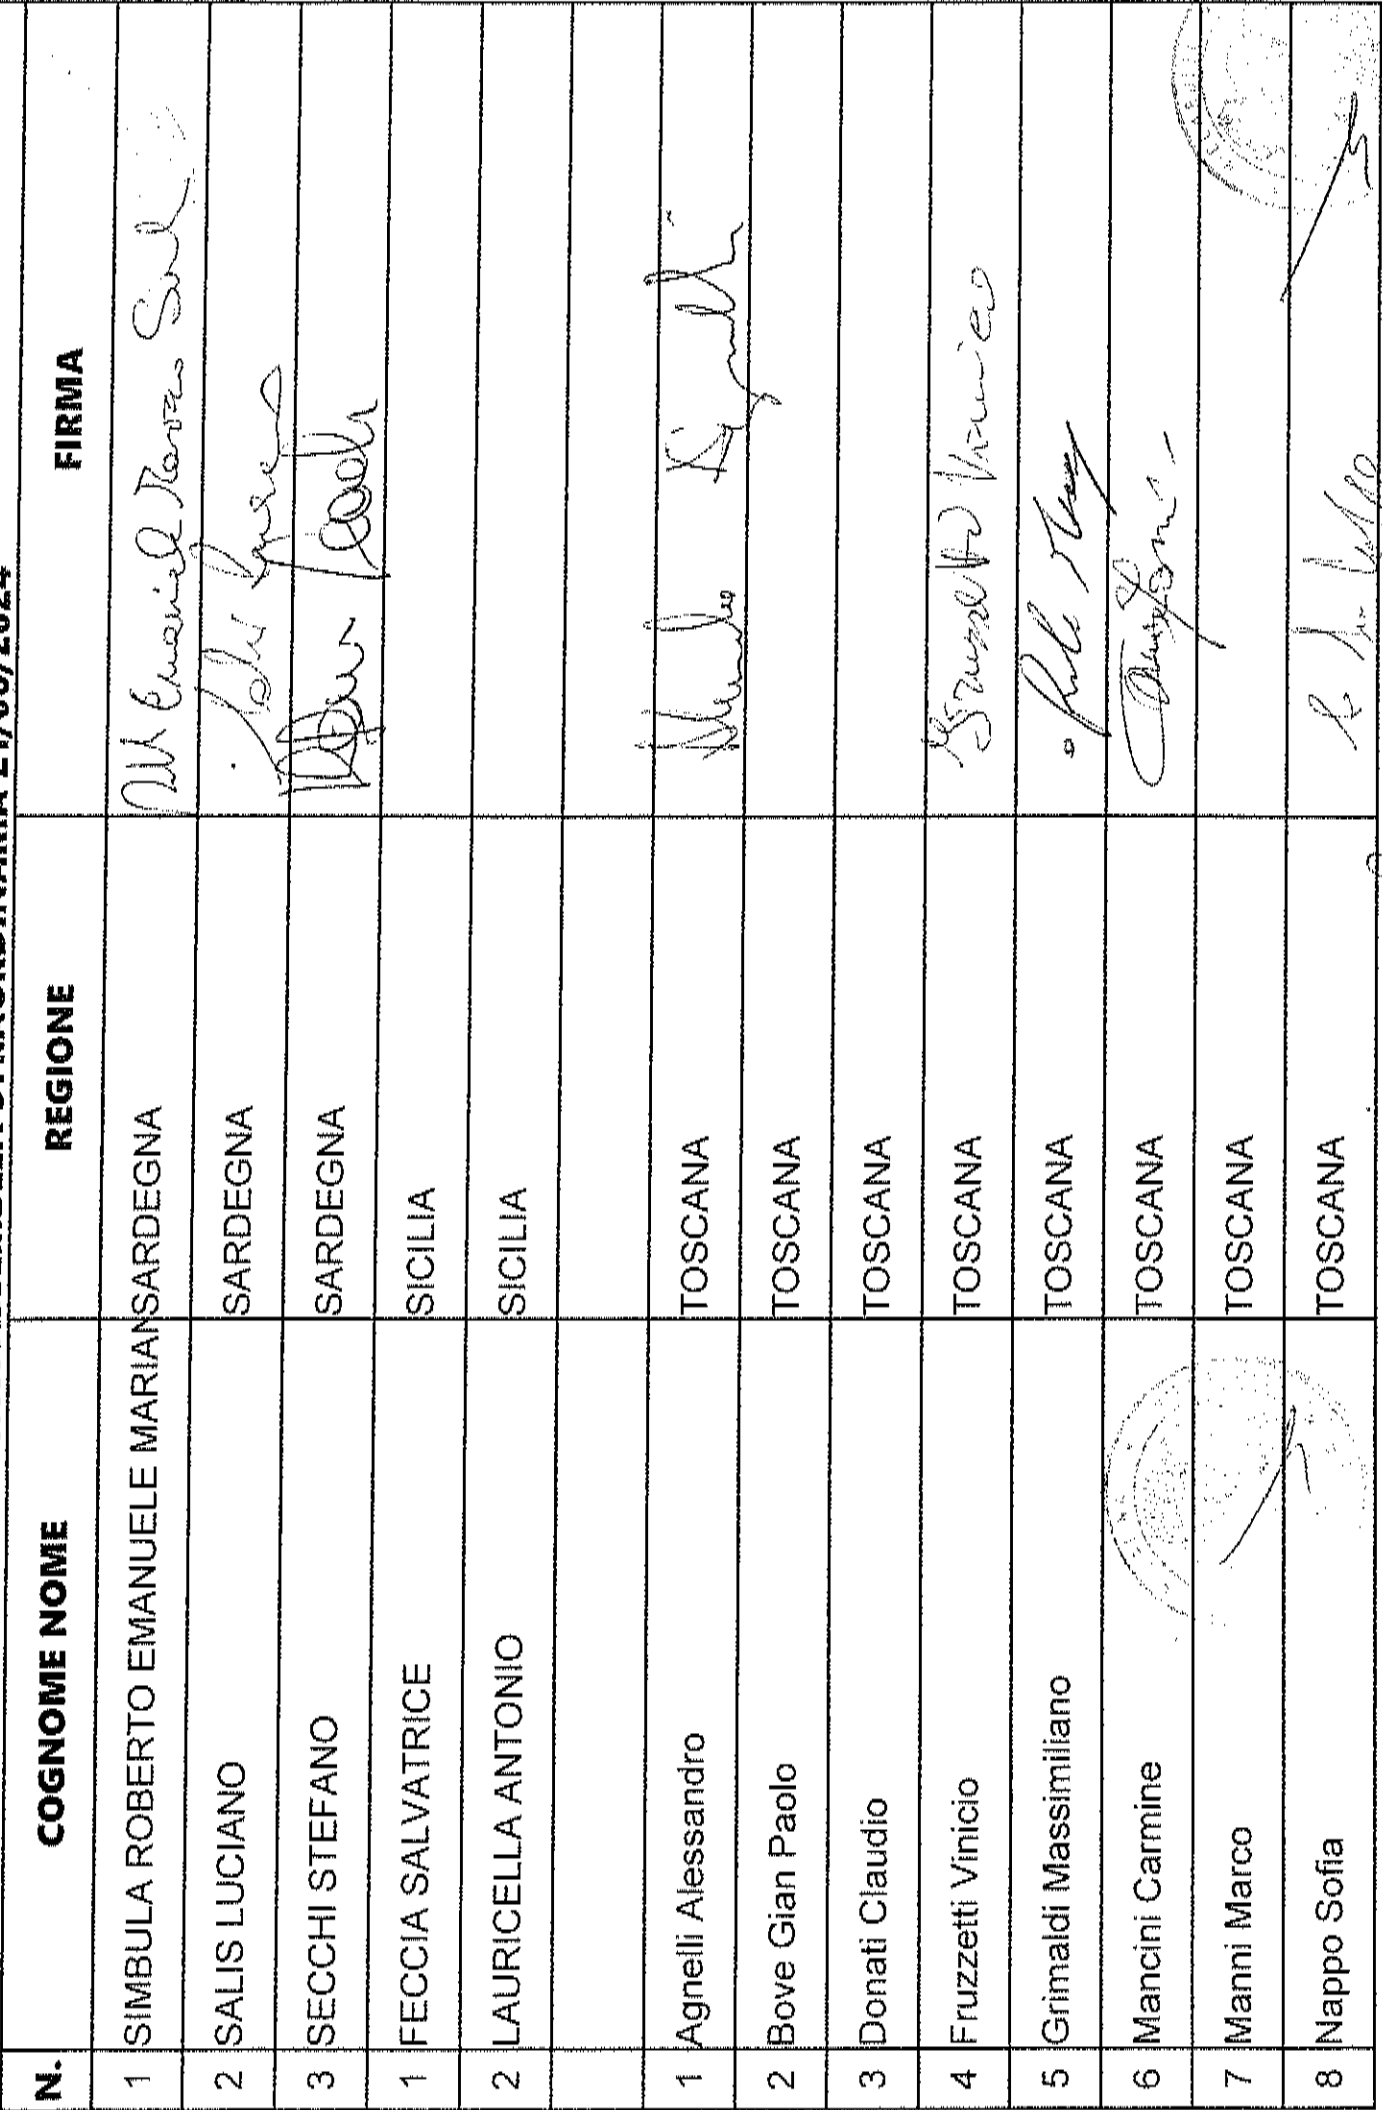 N. COGNOME NOME REGIONE FIRMA
1 SIMBULA ROBERTO EMANUELE MARIAN SARDEGNA
2 SALIS LUCIANO SARDEGNA
3 SECCHI STEFANO SARDEGNA
1 FECCIA SALVATRICE SICILIA
2 LAURICELLA ANTONIO SICILIA
1 Agnelli Alessandro TOSCANA
2 Bove Gian Paolo TOSCANA
3 Donati Claudio TOSCANA
4 Fruzzetti Vinicio TOSCANA Fruzzetti Vinicio
5 Grimaldi Massimiliano TOSCANA
6 Mancini Carmine TOSCANA
7 Manni Marco TOSCANA
8 Nappo Sofia TOSCANA